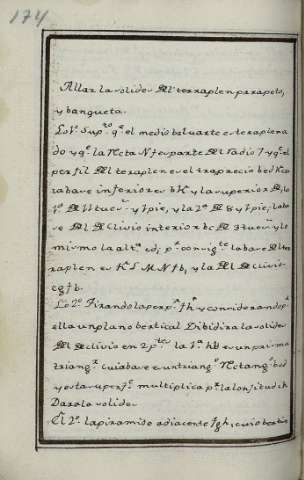 174
Allar la solides del terraplen parapeto,
y banqueta.
Lo 1º Sup.to q.e el medio baluarte es terraplena
do y q.e la recta N f es parte del radio 7 y q.e el
perfil del terraplen es el trapecio bed K cu
ia base inferior es b K y la superior
1ª de 11 tues.s y 1 pie, y la 2ª de 8 y 1 pie, la ba
se del declivio interior bc de 3 tues.s y lo
mismo la alt.ª cd; p.r consig.te la base del ter
raplen es K L M N f b, y la del declivio
cg f b.
Lo 2º Tirando la perp.r f h y considerando p.r
ella un plano bertical Dibidira la solides
del declivio en 2 p.tes la 1ª es un prisma
triang.r cuia base es un triang.o rectang.o bcd
y esta superf.e multiplica p.r la lonjitud ch
Dara lo solido.
El 2º la piramide adiacente f g h, cuio bertice